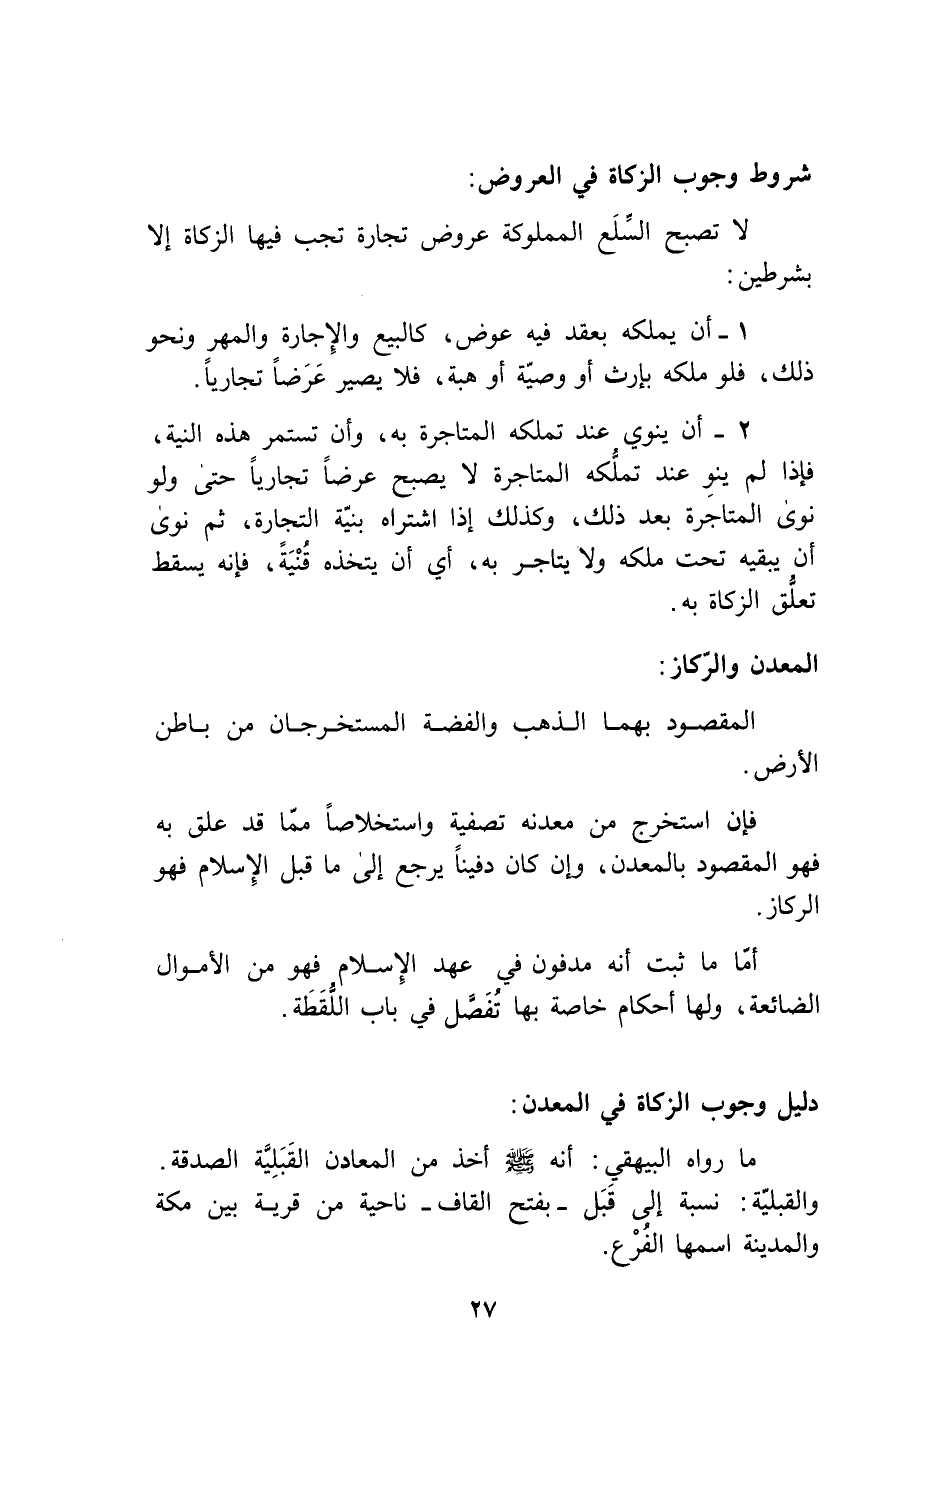 شروط وجوب الزكاة في العروض:
لا تصبح السِّلَع المملوكة عروض تجارة تجب فيها الزكاة إلا
بشرطين:
١ - أن يملكه بعقد فيه عوض، كالبيع والإِجارة والمهر ونحو
ذلك، فلو ملكه بإرث أو وصيّة أو هبة، فلا يصير عَرَضاً تجارياً.
٢ - أن ينوي عند تملكه المتاجرة به، وأن تستمر هذه النية،
فإذا لم ينوِ عند تملُّكه المتاجرة لا يصبح عرضاً تجارياً حتىٰ ولو
نوىٰ المتاجرة بعد ذلك، وكذلك إذا اشتراه بنيّة التجارة، ثم نوىٰ
أن يبقيه تحت ملكه ولا يتاجر به، أي أن يتخذه قُنْيَةً، فإنه يسقط
تعلُّق الزكاة به.
المعدن والرّكاز:
المقصود بهما الذهب والفضة المستخرجان من باطن
الأرض.
فإن استخرج من معدنه تصفية واستخلاصاً ممّا قد علق به
فهو المقصود بالمعدن، وإن كان دفيناً يرجع إلىٰ ما قبل الإِسلام فهو
الركاز.
أمّا ما ثبت أنه مدفون في عهد الإِسلام فهو من الأموال
الضائعة، ولها أحكام خاصة بها تُفَصَّل في باب اللُّقَطَة.
دليل وجوب الزكاة في المعدن:
ما رواه البيهقي: أنه ﷺ أخذ من المعادن القَبَلِيَّة الصدقة.
والقبليّة: نسبة إلى قَبَل - بفتح القاف - ناحية من قرية بين مكة
والمدينة اسمها الفُرْع.
٢٧